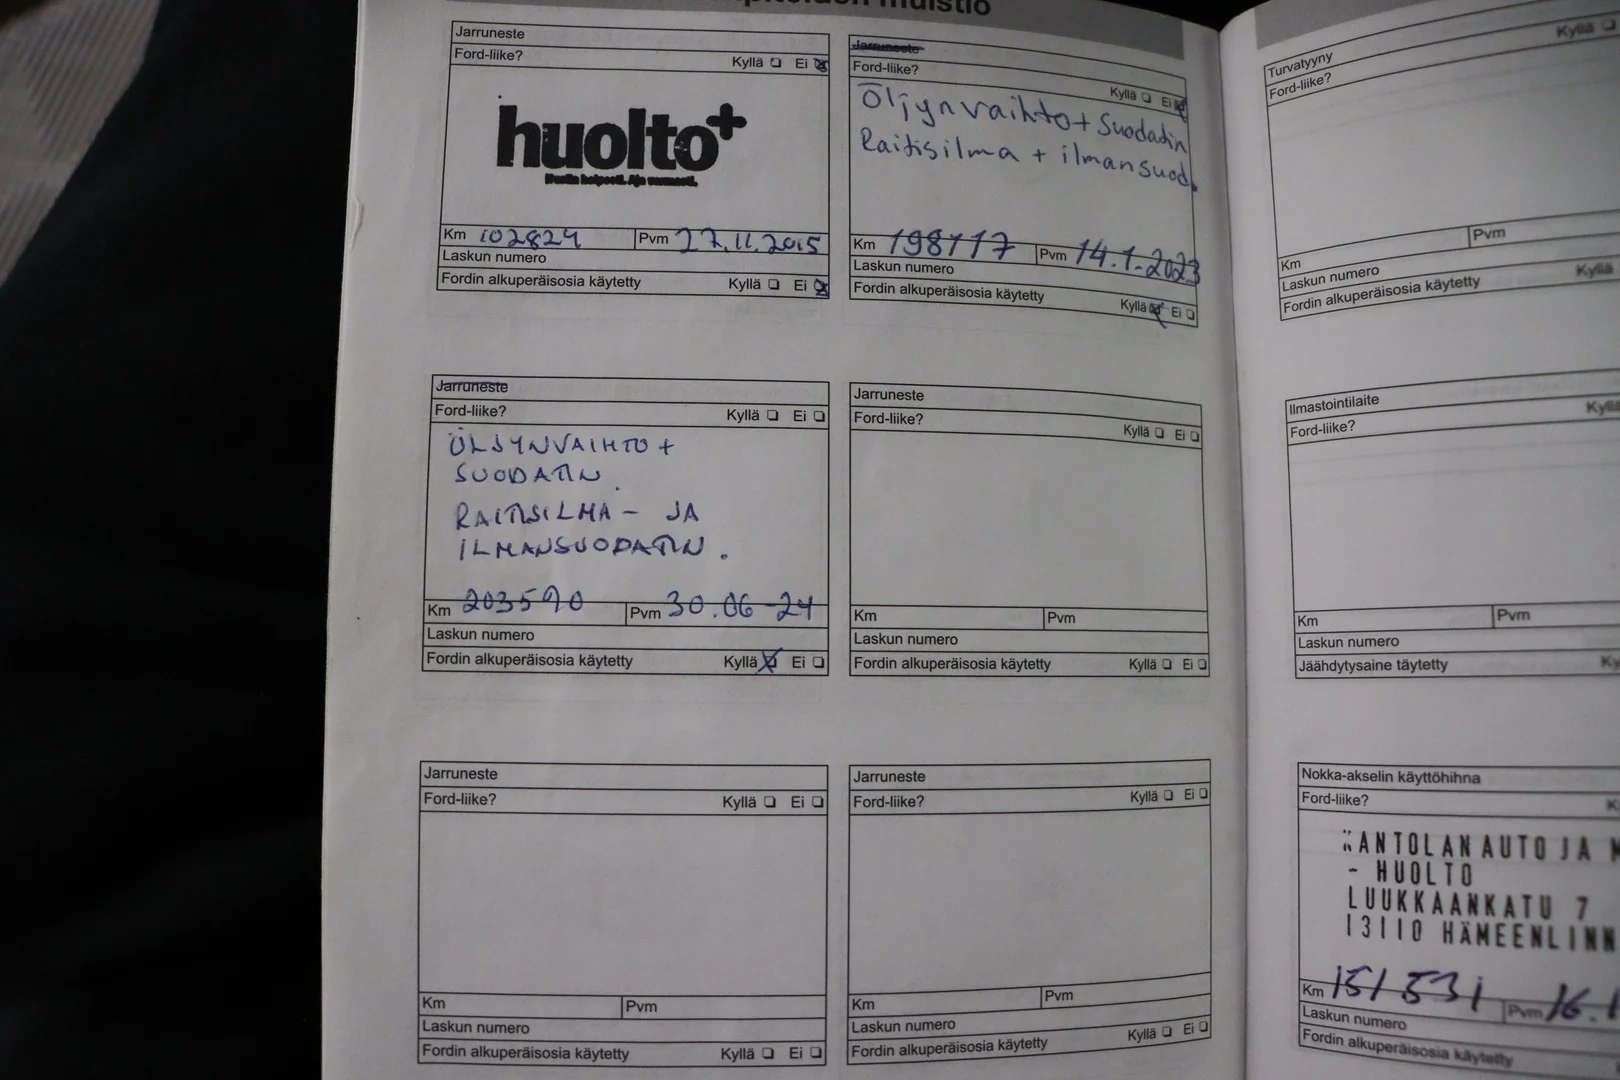 muistio
Jarruneste
Ford-liike? Kyllä ❏ Ei ❏
huolto+
Km 102824 Pvm 27.11.2015
Laskun numero
Fordin alkuperäisosia käytetty Kyllä ❏ Ei ❏
Jarruneste
Ford-liike? Kyllä ❏ Ei ❏
Öljynvaihto + Suodatin
Raitisilma + ilmansuod.
Km 198117 Pvm 14.1.2023
Laskun numero
Fordin alkuperäisosia käytetty Kyllä ❏ Ei ❏
Jarruneste
Ford-liike? Kyllä ❏ Ei ❏
ÖLJYNVAIHTO +
SUODATIN
RAITISILMA - JA
ILMANSUODATIN.
Km 203590 Pvm 30.06-24
Laskun numero
Fordin alkuperäisosia käytetty Kyllä ❏ Ei ❏
Jarruneste
Ford-liike? Kyllä ❏ Ei ❏
Km Pvm
Laskun numero
Fordin alkuperäisosia käytetty Kyllä ❏ Ei ❏
Jarruneste
Ford-liike? Kyllä ❏ Ei ❏
Km Pvm
Laskun numero
Fordin alkuperäisosia käytetty Kyllä ❏ Ei ❏
Jarruneste
Ford-liike? Kyllä ❏ Ei ❏
Km Pvm
Laskun numero
Fordin alkuperäisosia käytetty Kyllä ❏ Ei ❏
Turvatyyny
Ford-liike? Kyllä ❏
Km Pvm
Laskun numero
Fordin alkuperäisosia käytetty Kyllä
Ilmastointilaite
Ford-liike? Kyllä
Km Pvm
Laskun numero
Jäähdytysaine täytetty Ky
Nokka-akselin käyttöhihna
Ford-liike? K
ANTOLAN AUTO JA
- HUOLTO
LUUKKAANKATU 7
13110 HÄMEENLINN
Km 151531 Pvm 16.1
Laskun numero
Fordin alkuperäisosia käytetty